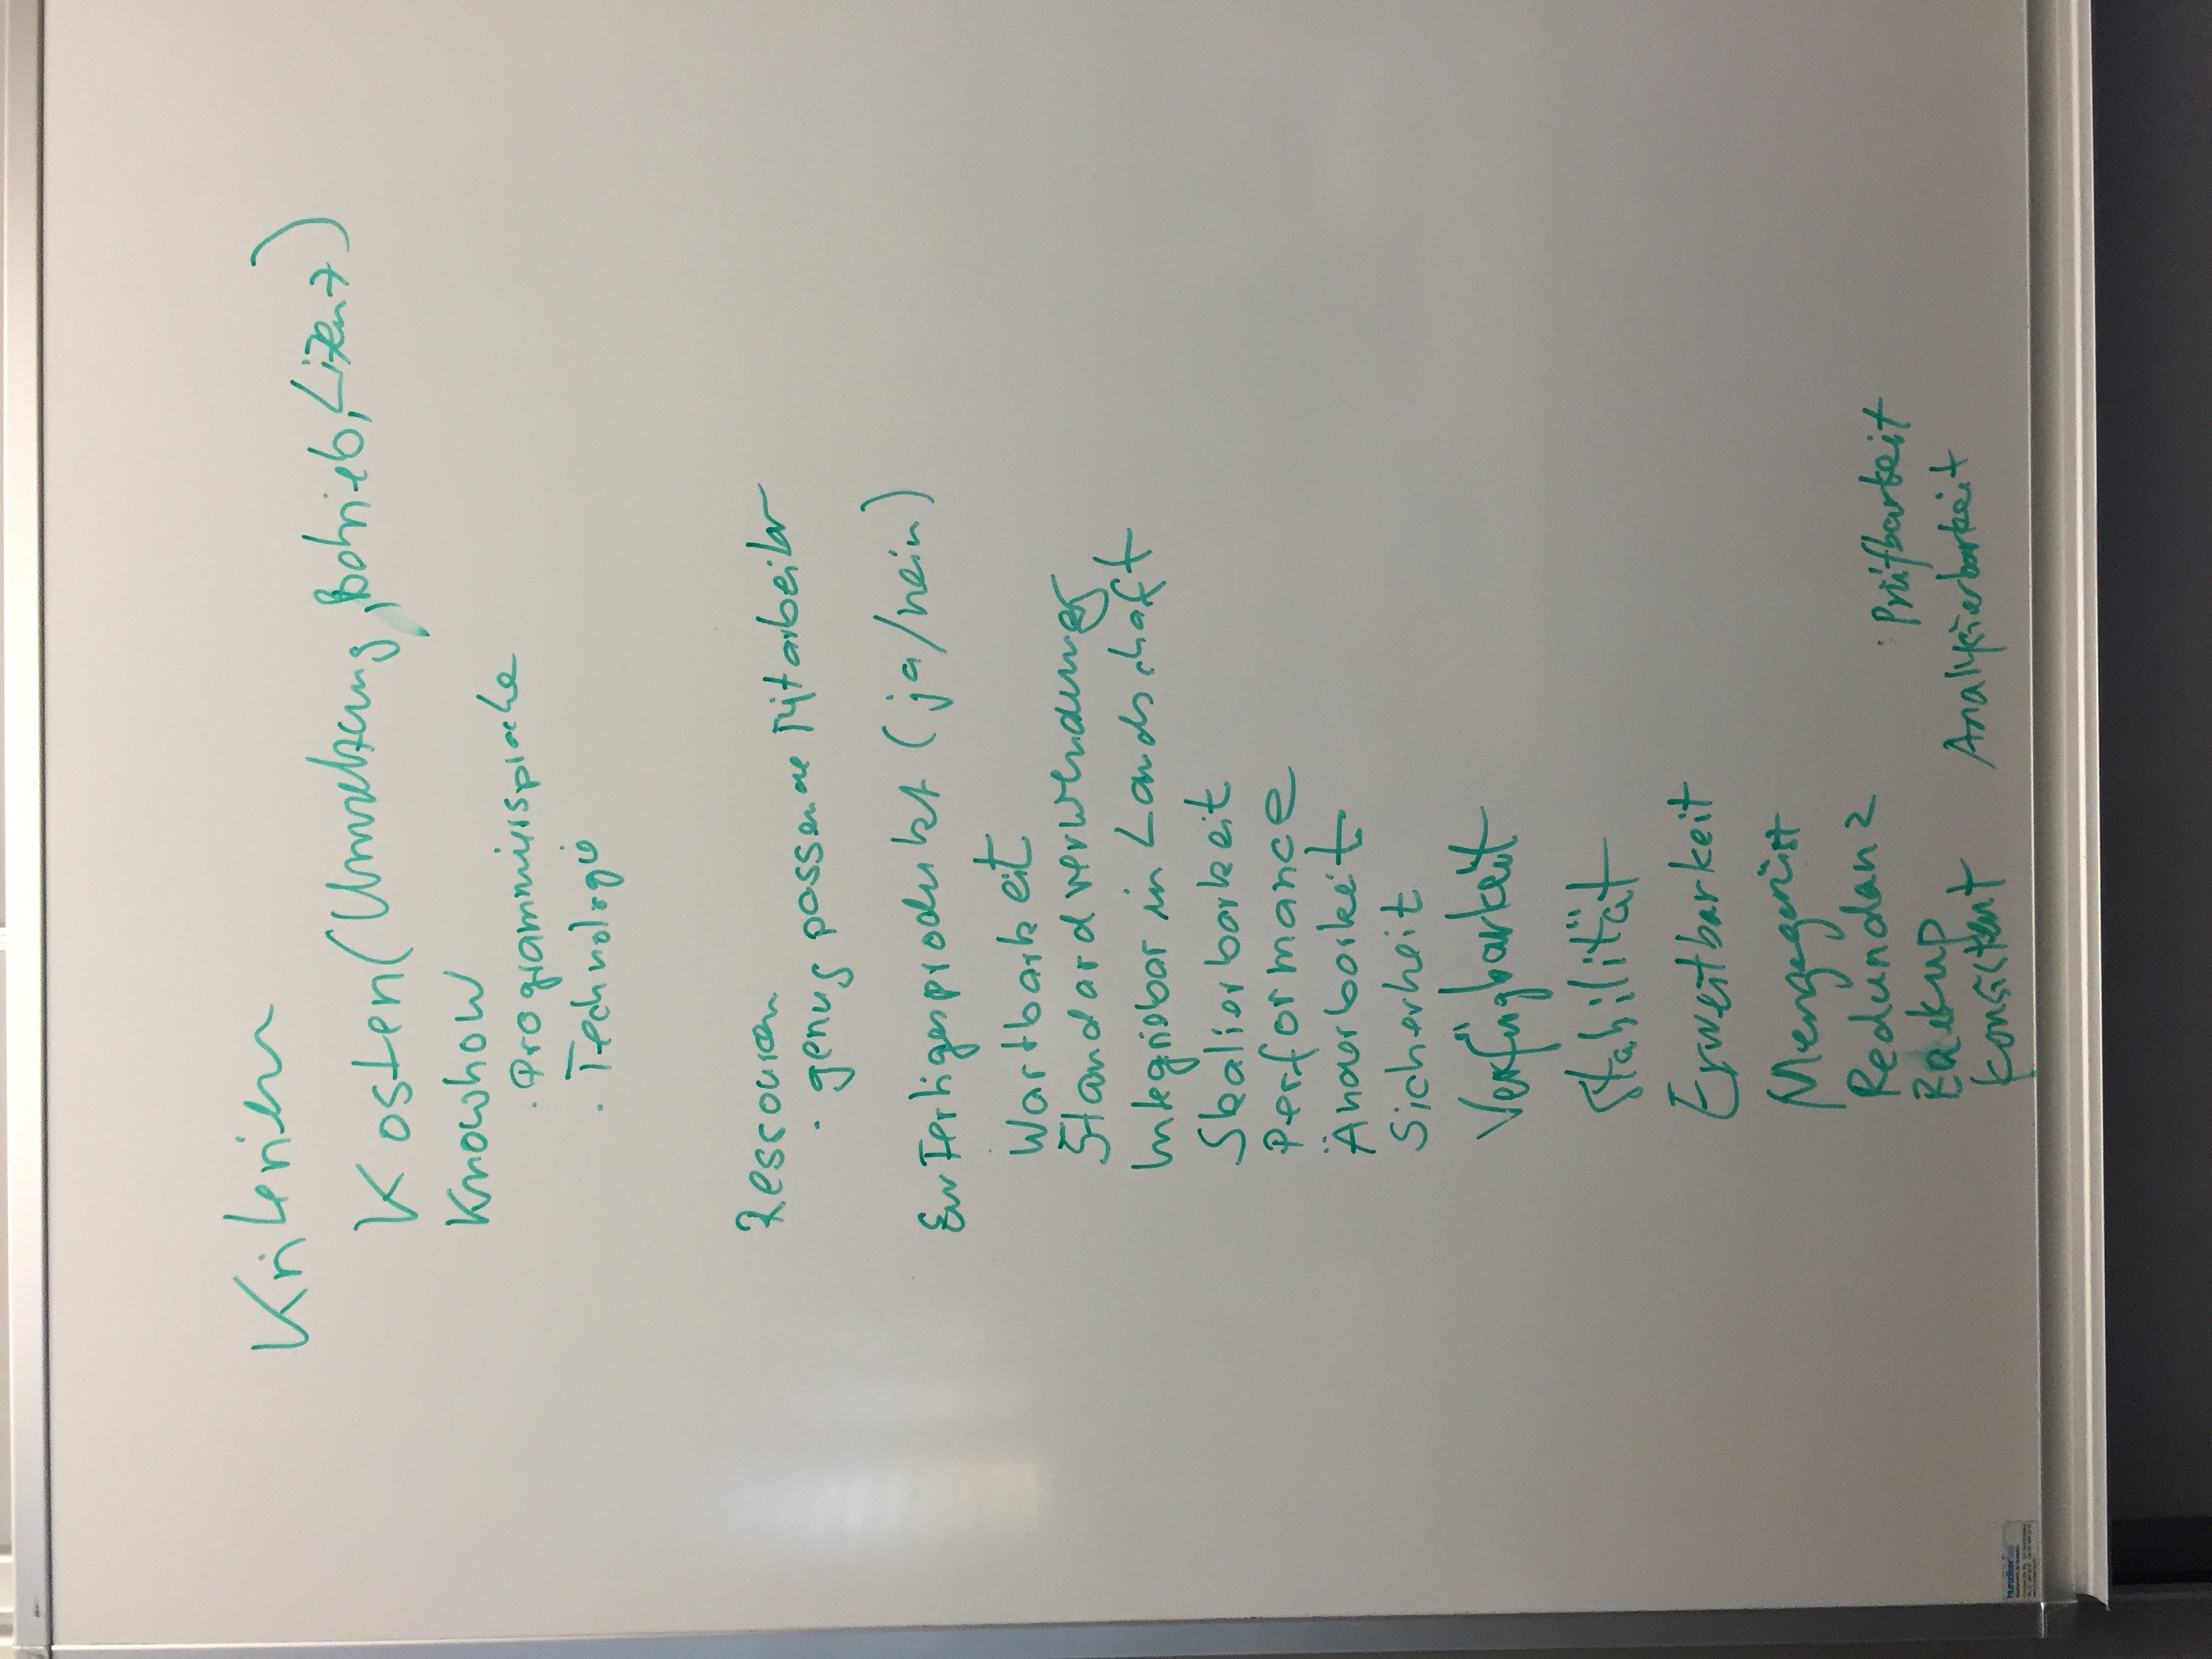 Kriterien
Kosten (Umsetzung, Betrieb, Lizenz)
Knowhow
· Programmiersprache
· Technologie
Ressourcen
· genug passende Mitarbeiter
Fertigesprodukt (ja/nein)
Wartbarkeit
Standardverwendung
Integrierbar in Landschaft
Skalierbarkeit
Performance
Änderbarkeit
Sicherheit
Verfügbarkeit
Stabilität
Erweitbarkeit
Mengegerüst
Redundanz
Prüfbarkeit
Backup
Analysierbarkeit
Konsistent
hunziker